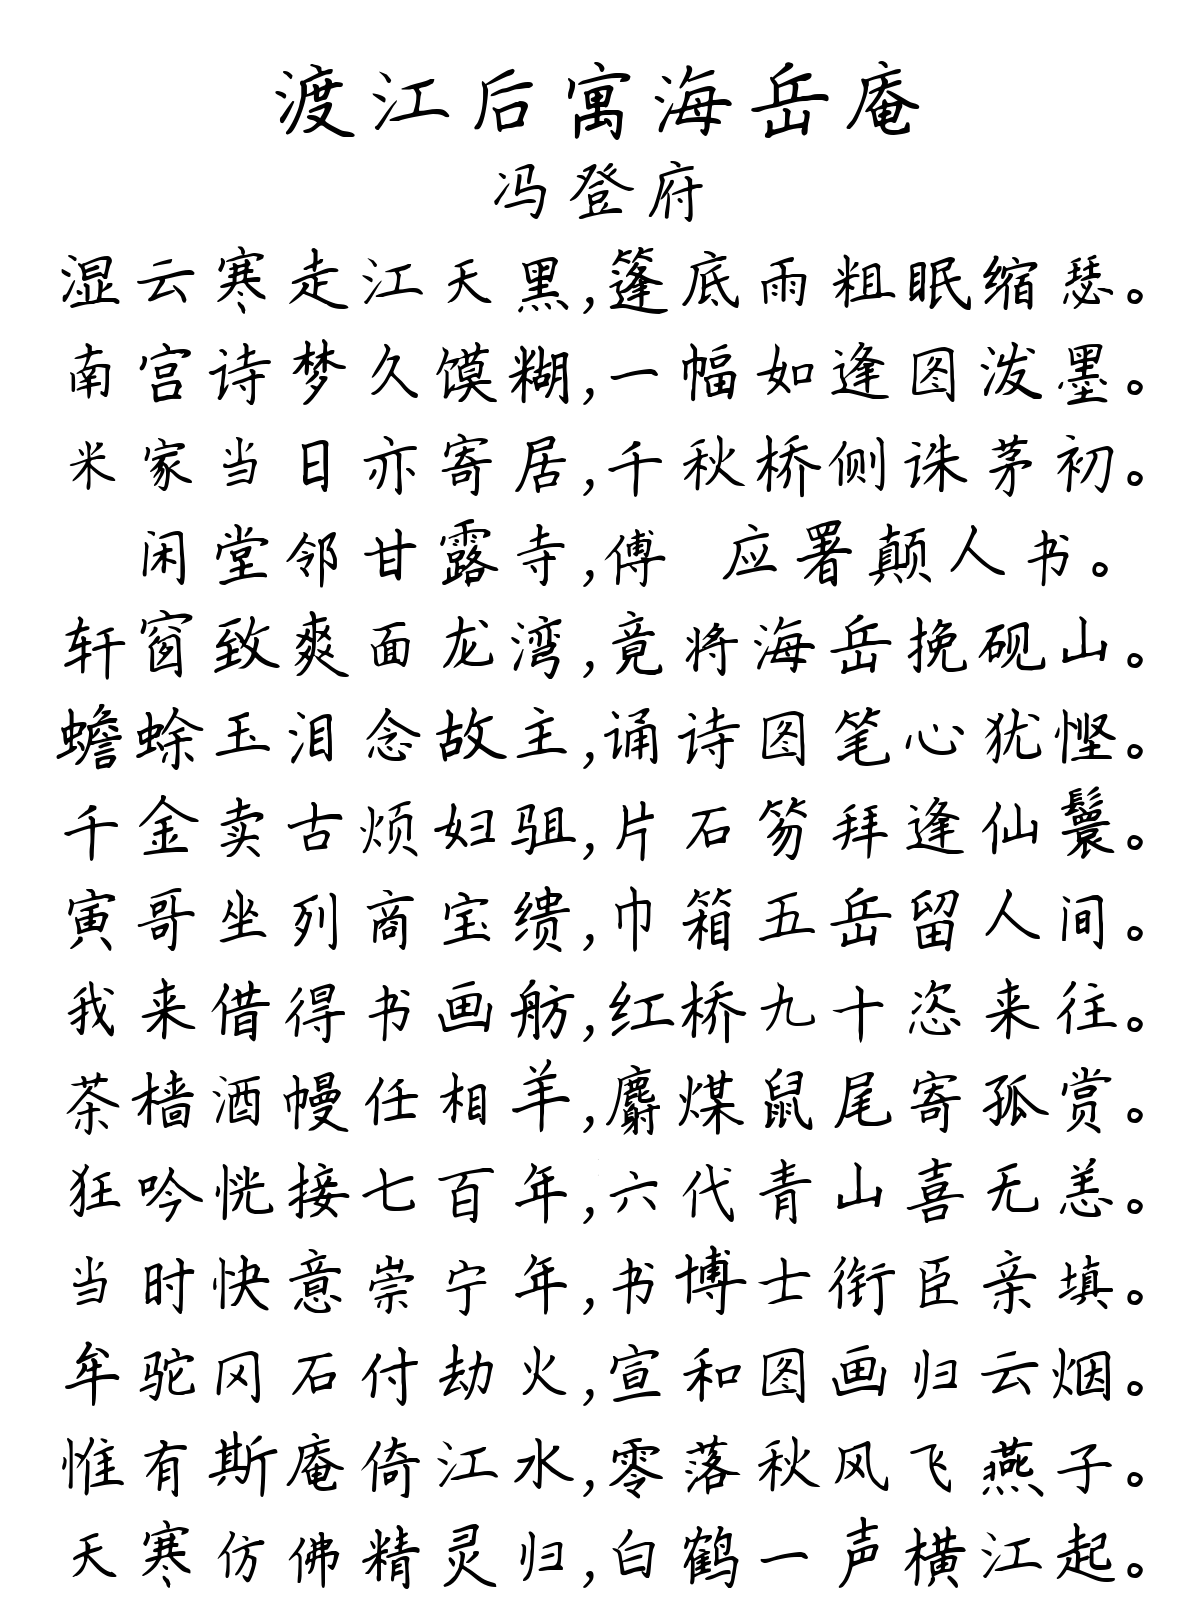 渡江后寓海岳庵
冯登府
湿云寒走江天黑,篷底雨粗眠缩瑟。
南宫诗梦久馍糊,一幅如逢图泼墨。
米家当日亦寄居,千秋桥侧诛茅初。
闲堂邻甘露寺,傅 应署颠人书。
轩窗致爽面龙湾,竟将海岳挽砚山。
蟾蜍玉泪念故主,诵诗图笔心犹悭。
千金卖古烦妇驵,片石笏拜逢仙鬟。
寅哥坐列商宝缋,巾箱五岳留人间。
我来借得书画舫,红桥九十恣来往。
茶樯酒幔任相羊,麝煤鼠尾寄孤赏。
狂吟恍接七百年,六代青山喜无恙。
当时快意崇宁年,书博士衔臣亲填。
牟驼冈石付劫火,宣和图画归云烟。
惟有斯庵倚江水,零落秋风飞燕子。
天寒仿佛精灵归,白鹤一声横江起。